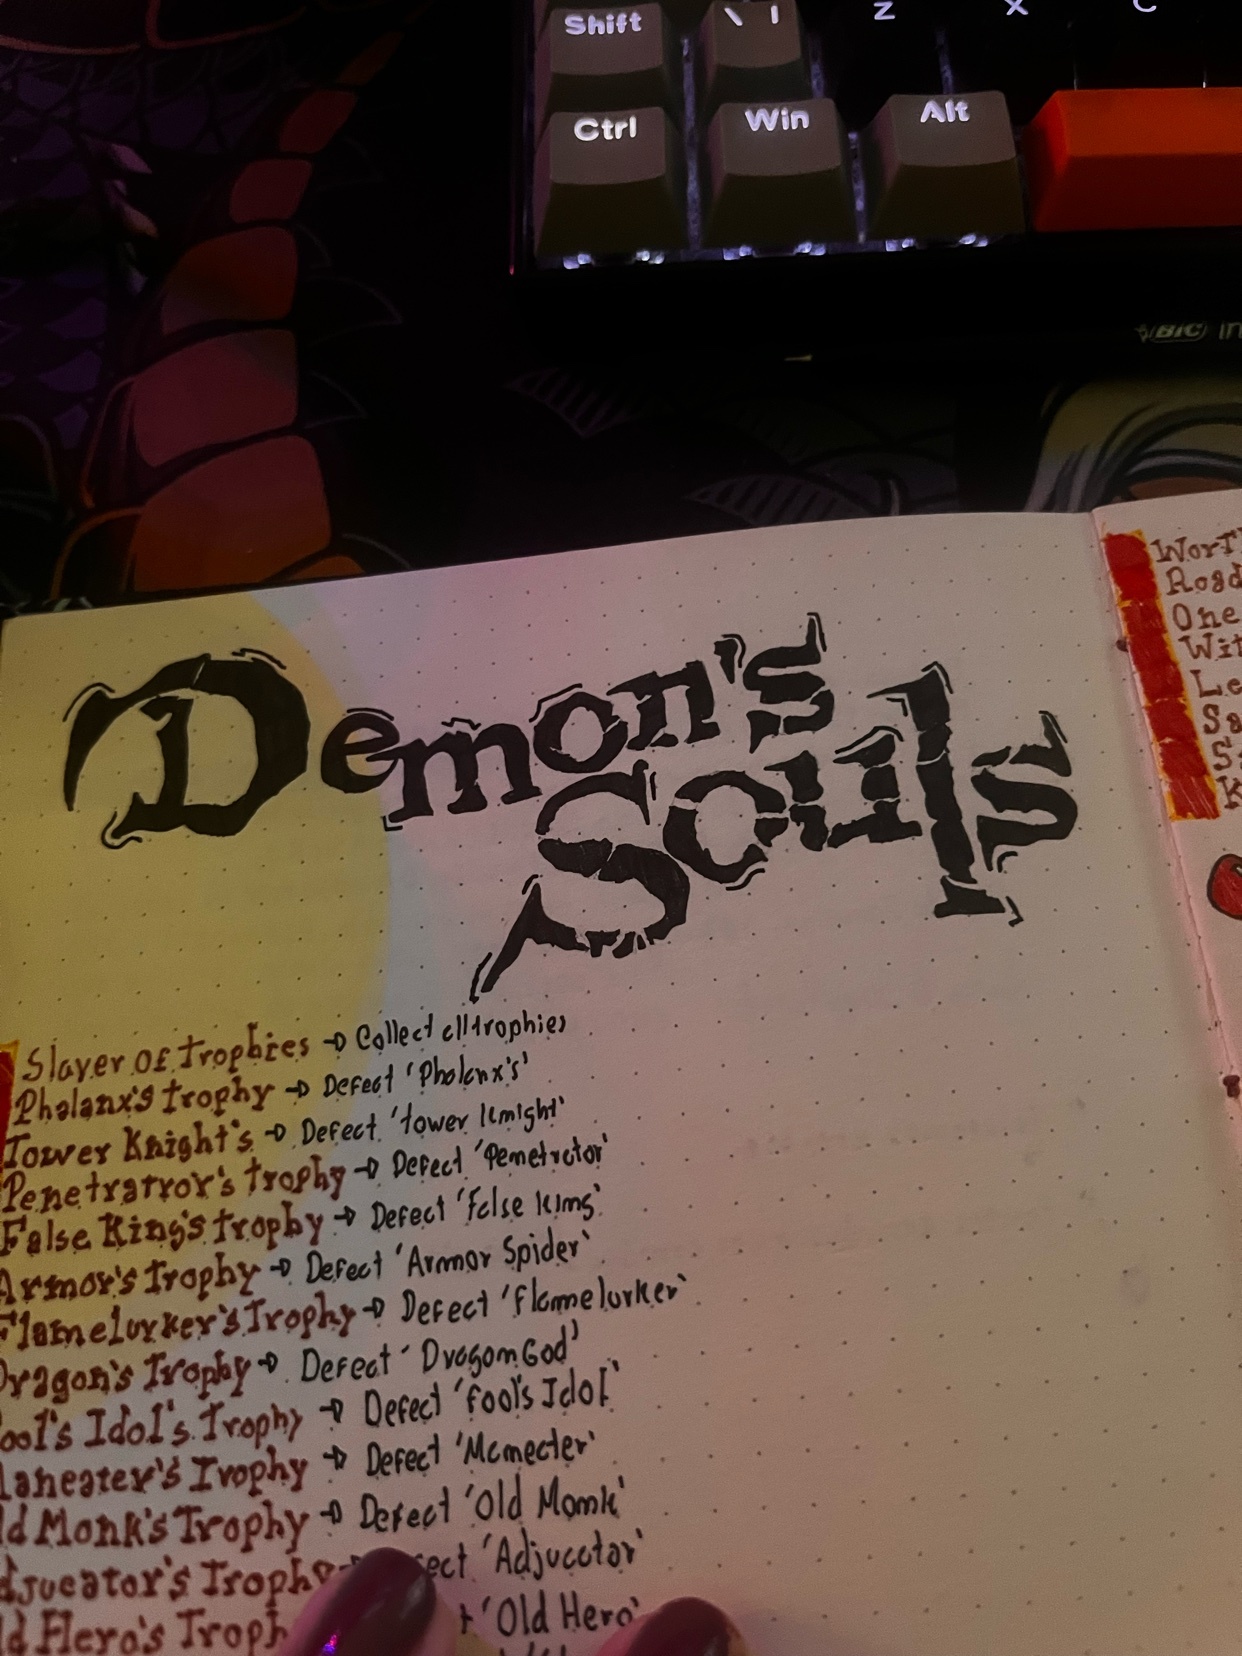 Shift \ | Z X C
Ctrl Win Alt
BIC in
Demon's
Souls
Slayer of Trophies → Collect all trophies
Phalanx's Trophy → Defeat 'Phalanx's'
Tower Knight's → Defeat 'Tower Knight'
Penetrator's Trophy → Defeat 'Penetrator'
False King's Trophy → Defeat 'False King'
Armor's Trophy → Defeat 'Armor Spider'
Flamelurker's Trophy → Defeat 'Flamelurker'
Dragon's Trophy → Defeat 'Dragon God'
ool's Idol's Trophy → Defeat 'Fool's Idol'
aneater's Trophy → Defeat 'Maneater'
ld Monk's Trophy → Defeat 'Old Monk'
djucator's Trophy → ect 'Adjucator'
ld Hero's Troph t 'Old Hero'
Wort
Road
One
Wit
Le
Sa
K